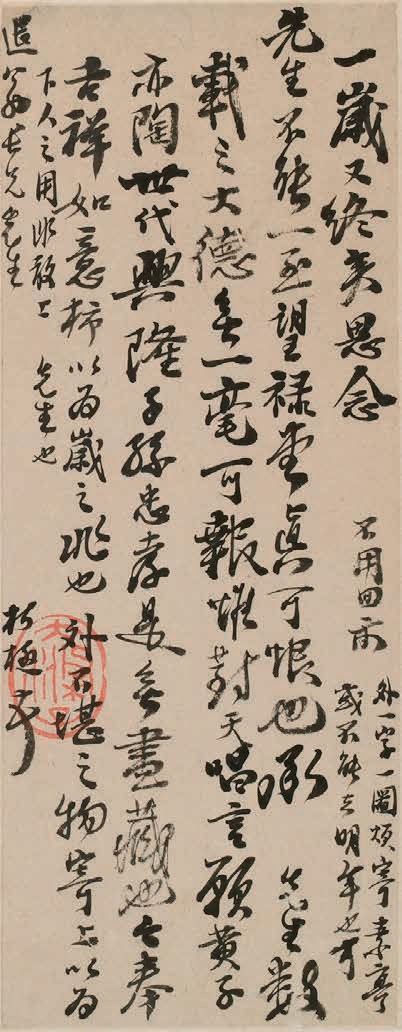 一歲又終矣思念
先生不能一至望祿堂真可恨也承 先生數
載之大德無一毫可報惟對天唱言願黃子
亦陶世代興隆子孫忠孝是無盡藏也今奉
吉祥如意柿以為歲之兆也 外不堪之物寄上以為
下人之用非敢上 先生也
翁長兄先生 朽極
不用回示
外一字一圖煩寄素亭
或不能去明年也可